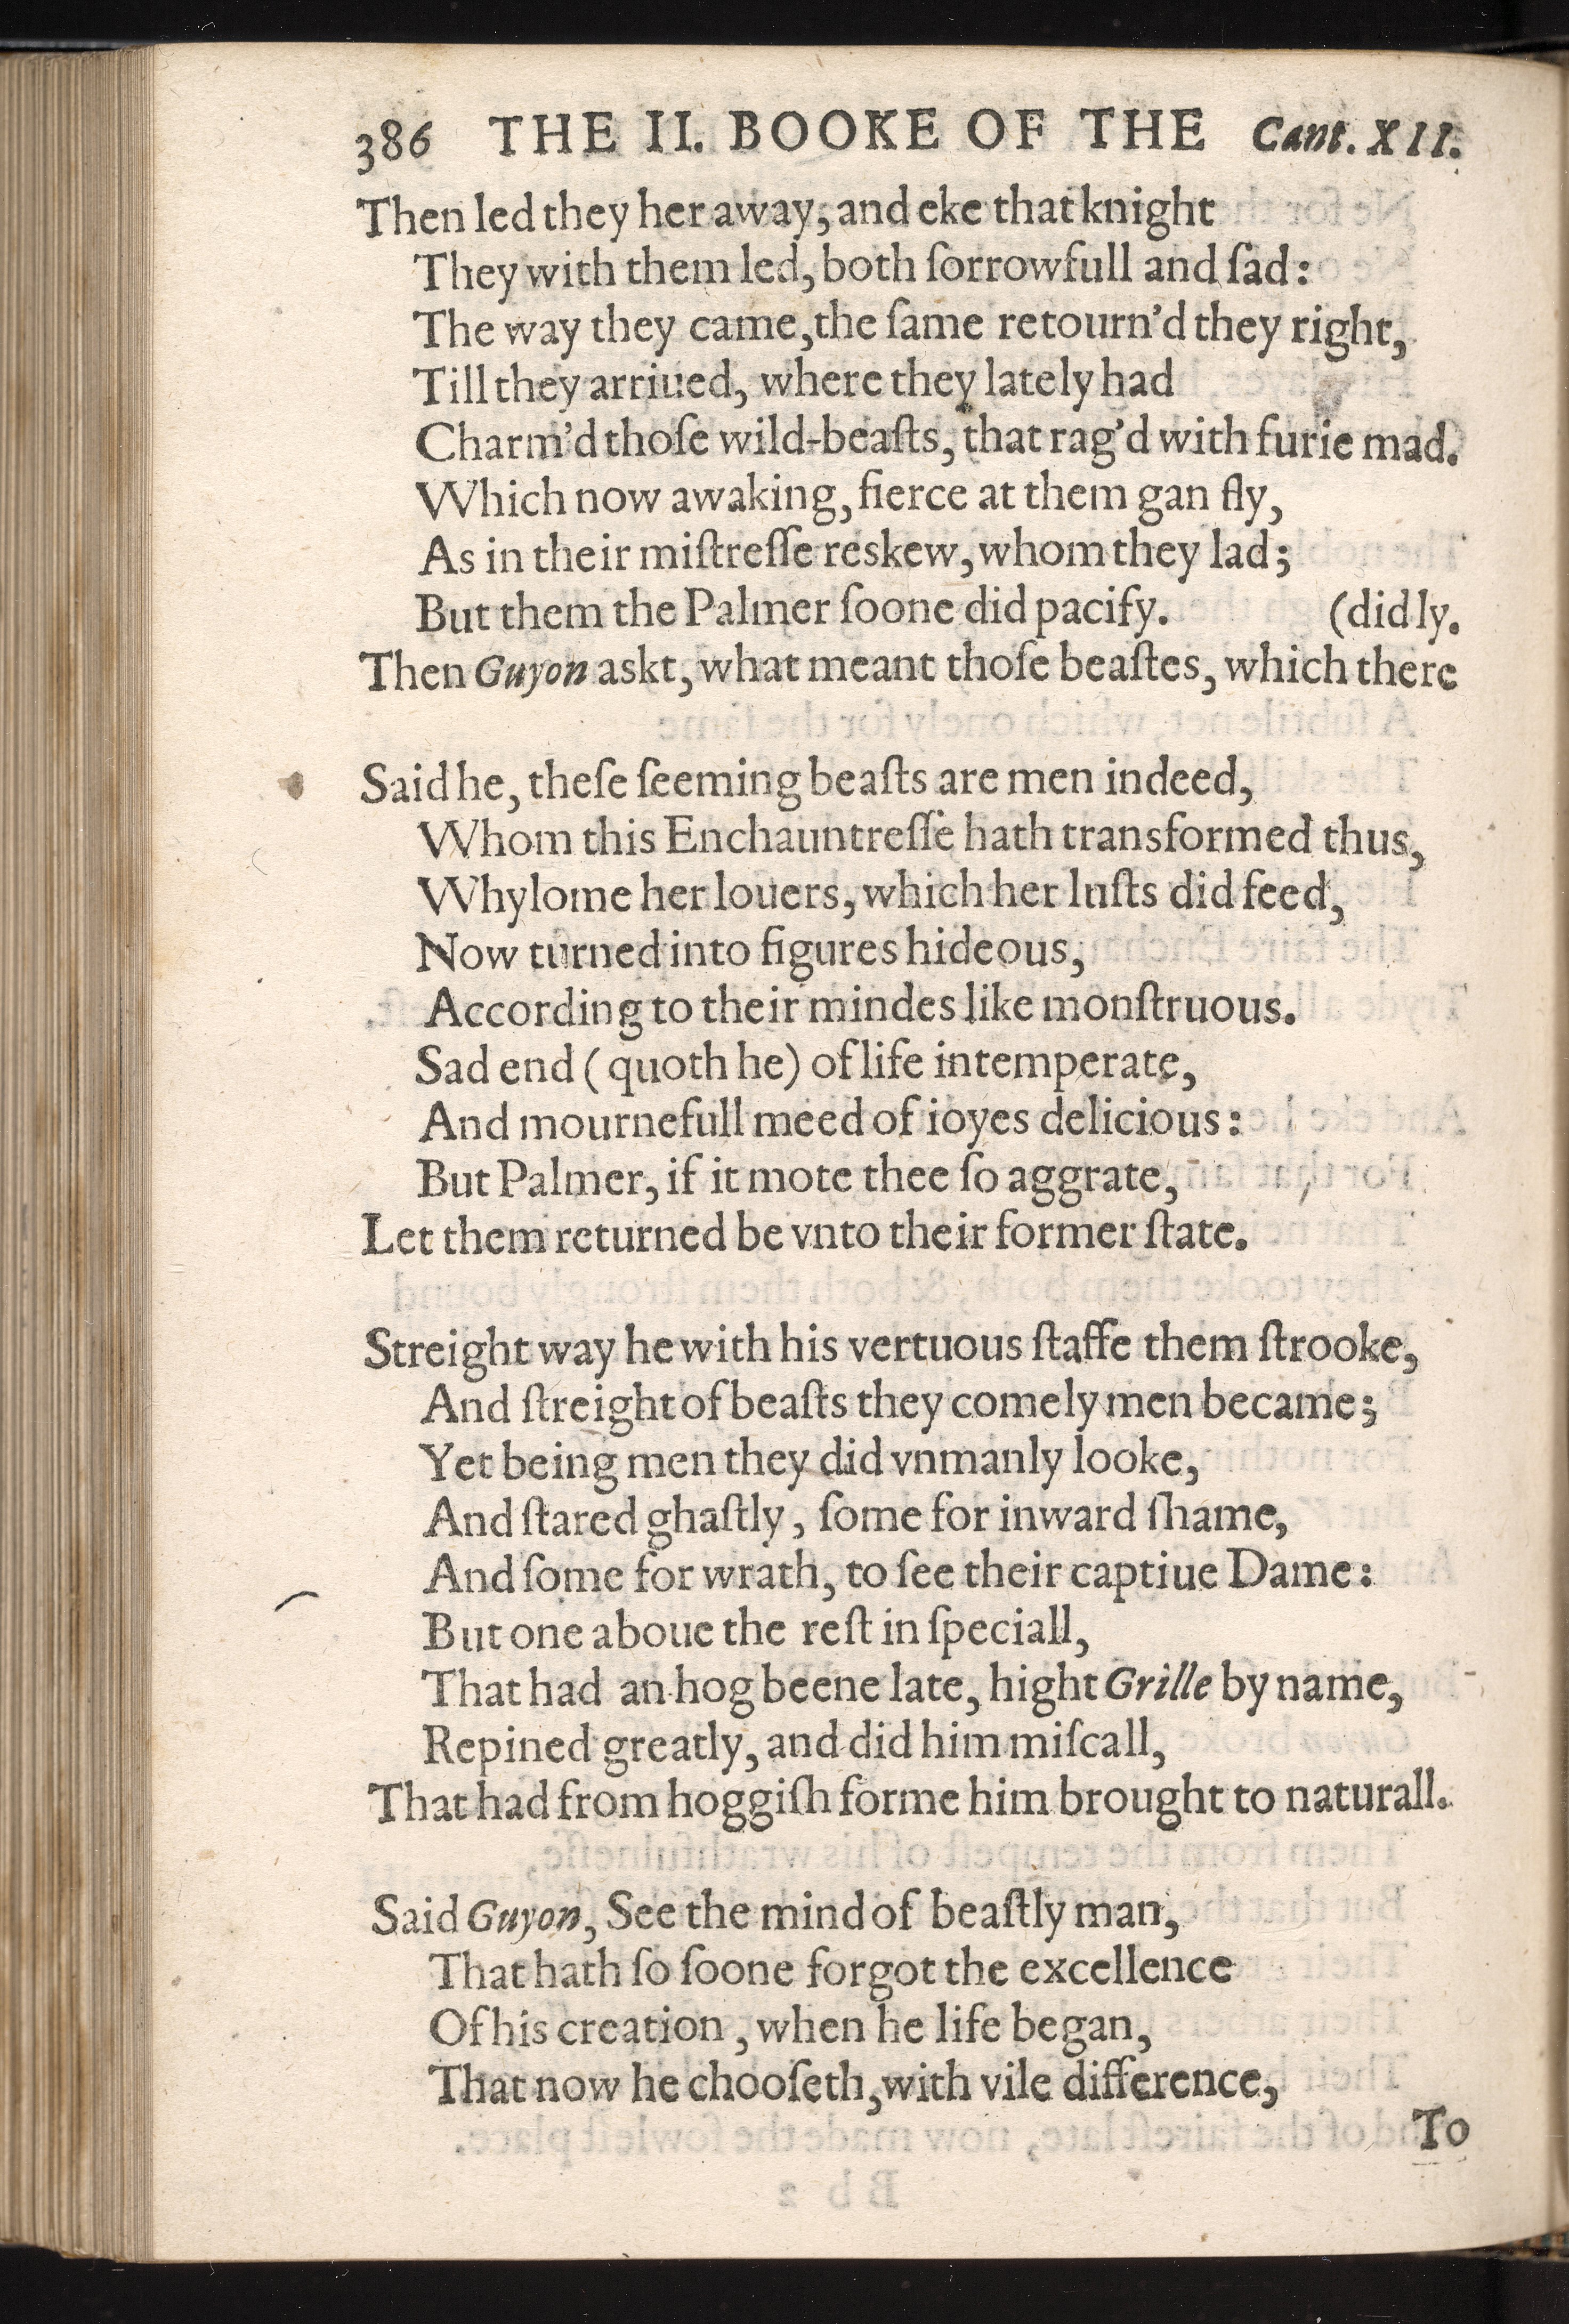 386 THE II. BOOKE OF THE Cant. XII.
Then led they her away, and eke that knight
They with them led, both ſorrowfull and ſad:
The way they came, the ſame retourn'd they right,
Till they arriued, where they lately had
Charm'd thoſe wild-beaſts, that rag'd with furie mad.
Which now awaking, fierce at them gan fly,
As in their miſtreſſe reskew, whom they lad;
But them the Palmer ſoone did pacify. (did ly.
Then Guyon askt, what meant thoſe beaſtes, which there
Said he, theſe ſeeming beaſts are men indeed,
Whom this Enchauntreſſe hath transformed thus,
Whylome her louers, which her luſts did feed,
Now turned into figures hideous,
According to their mindes like monſtruous.
Sad end (quoth he) of life intemperate,
And mournefull meed of ioyes delicious:
But Palmer, if it mote thee ſo aggrate,
Let them returned be vnto their former ſtate.
Streight way he with his vertuous ſtaffe them ſtrooke,
And ſtreight of beaſts they comely men became;
Yet being men they did vnmanly looke,
And ſtared ghaſtly, ſome for inward ſhame,
And ſome for wrath, to ſee their captiue Dame:
But one aboue the reſt in ſpeciall,
That had an hog beene late, hight Grille by name,
Repined greatly, and did him miſcall,
That had from hoggiſh forme him brought to naturall.
Said Guyon, See the mind of beaſtly man,
That hath ſo ſoone forgot the excellence
Of his creation, when he life began,
That now he chooſeth, with vile difference,
To